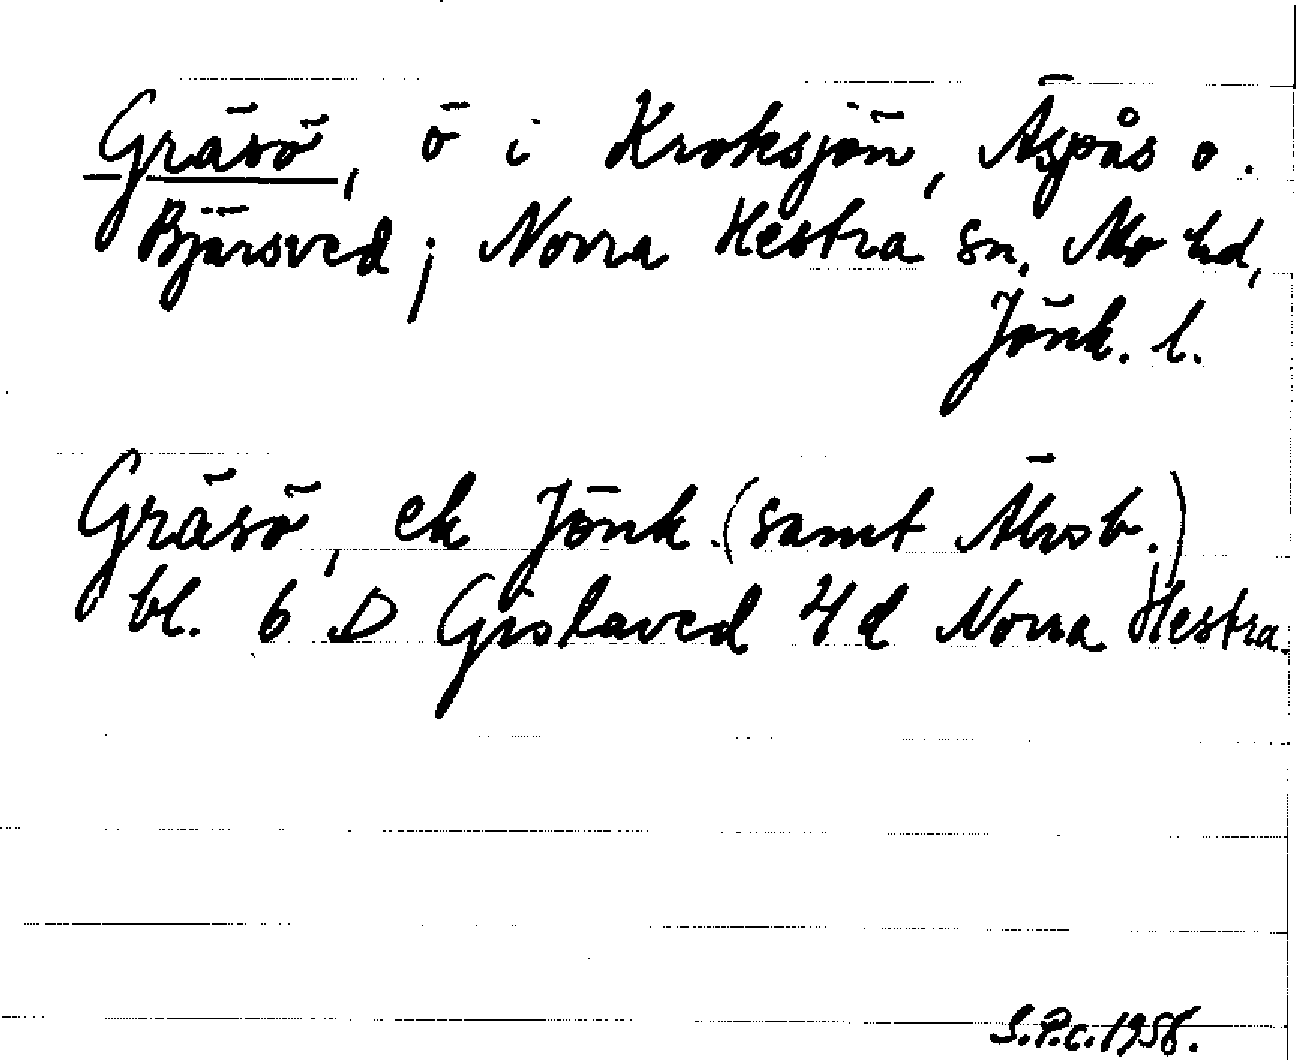 Gräsö, ö i Kroksjön, Äspås o.
Bjärsved; Norra Hestra sn, Mo hd,
Jönk. l.
Gräsö, ek Jönk. (samt Älvsb.)
bl. 6 D Gislaved 4 d Norra Hestra.
S.P.c. 1958.